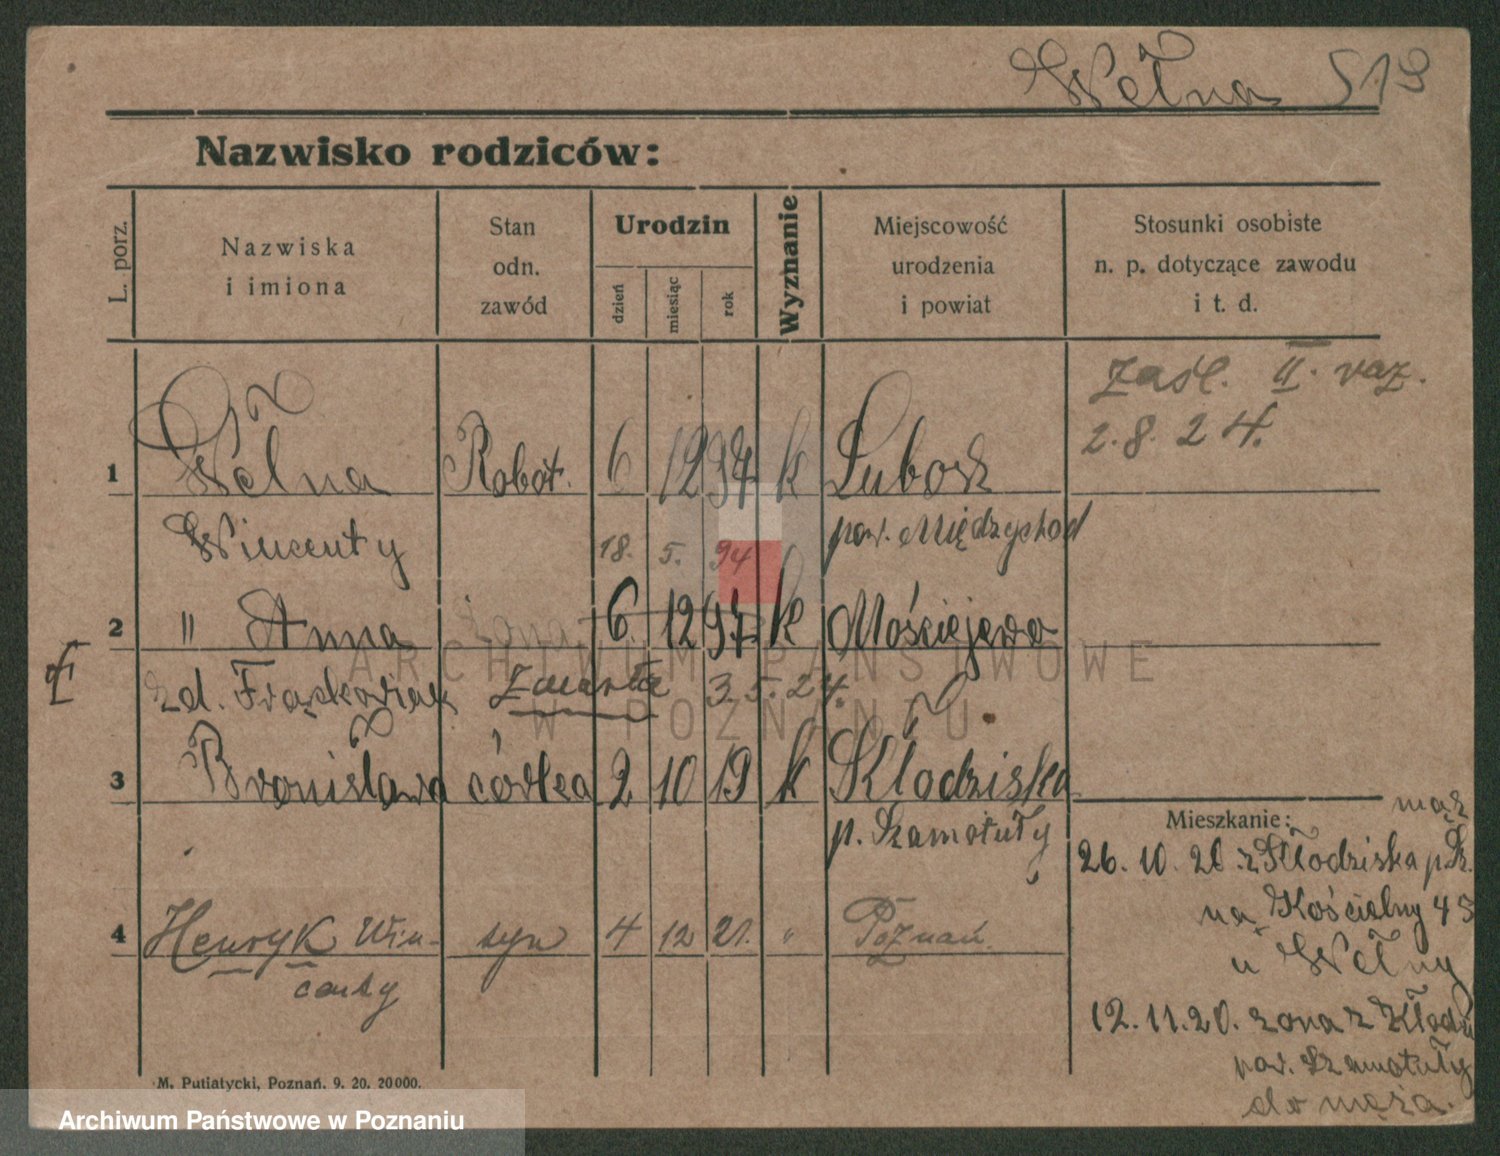 Wełna 519
Nazwisko rodziców:
L. porz.
Nazwiska
i imiona
Stan
odn.
zawód
Urodzin
dzień
miesiąc
rok
Wyznanie
Miejscowość
urodzenia
i powiat
Stosunki osobiste
n. p. dotyczące zawodu
i t. d.
Zaśl. II. raz.
2.8.24.
1 Wełna Robot. 6 12 94 k Lubosz
Wincenty 18. 5. 94 pow. Międzychod
2 " Anna żona 6 12 97 k Mościejewo
zd. Frąckowiak Zmarła 3.5.24.
3 Bronisława córka 2 10 19 k Kłodziska
p. Szamotuły
4 Henryk Win- syn 4 12 21. " Poznań.
centy
Mieszkanie: mąż
26. 10. 20 z Kłodziska p. Sz.
na Kościelny 43
u Wełny
12. 11. 20. żona z
pow. Szamotuły
do męża.
M. Putiatycki, Poznań. 9. 20. 20000.
ARCHIWUM PAŃSTWOWE
W POZNANIU
Archiwum Państwowe w Poznaniu